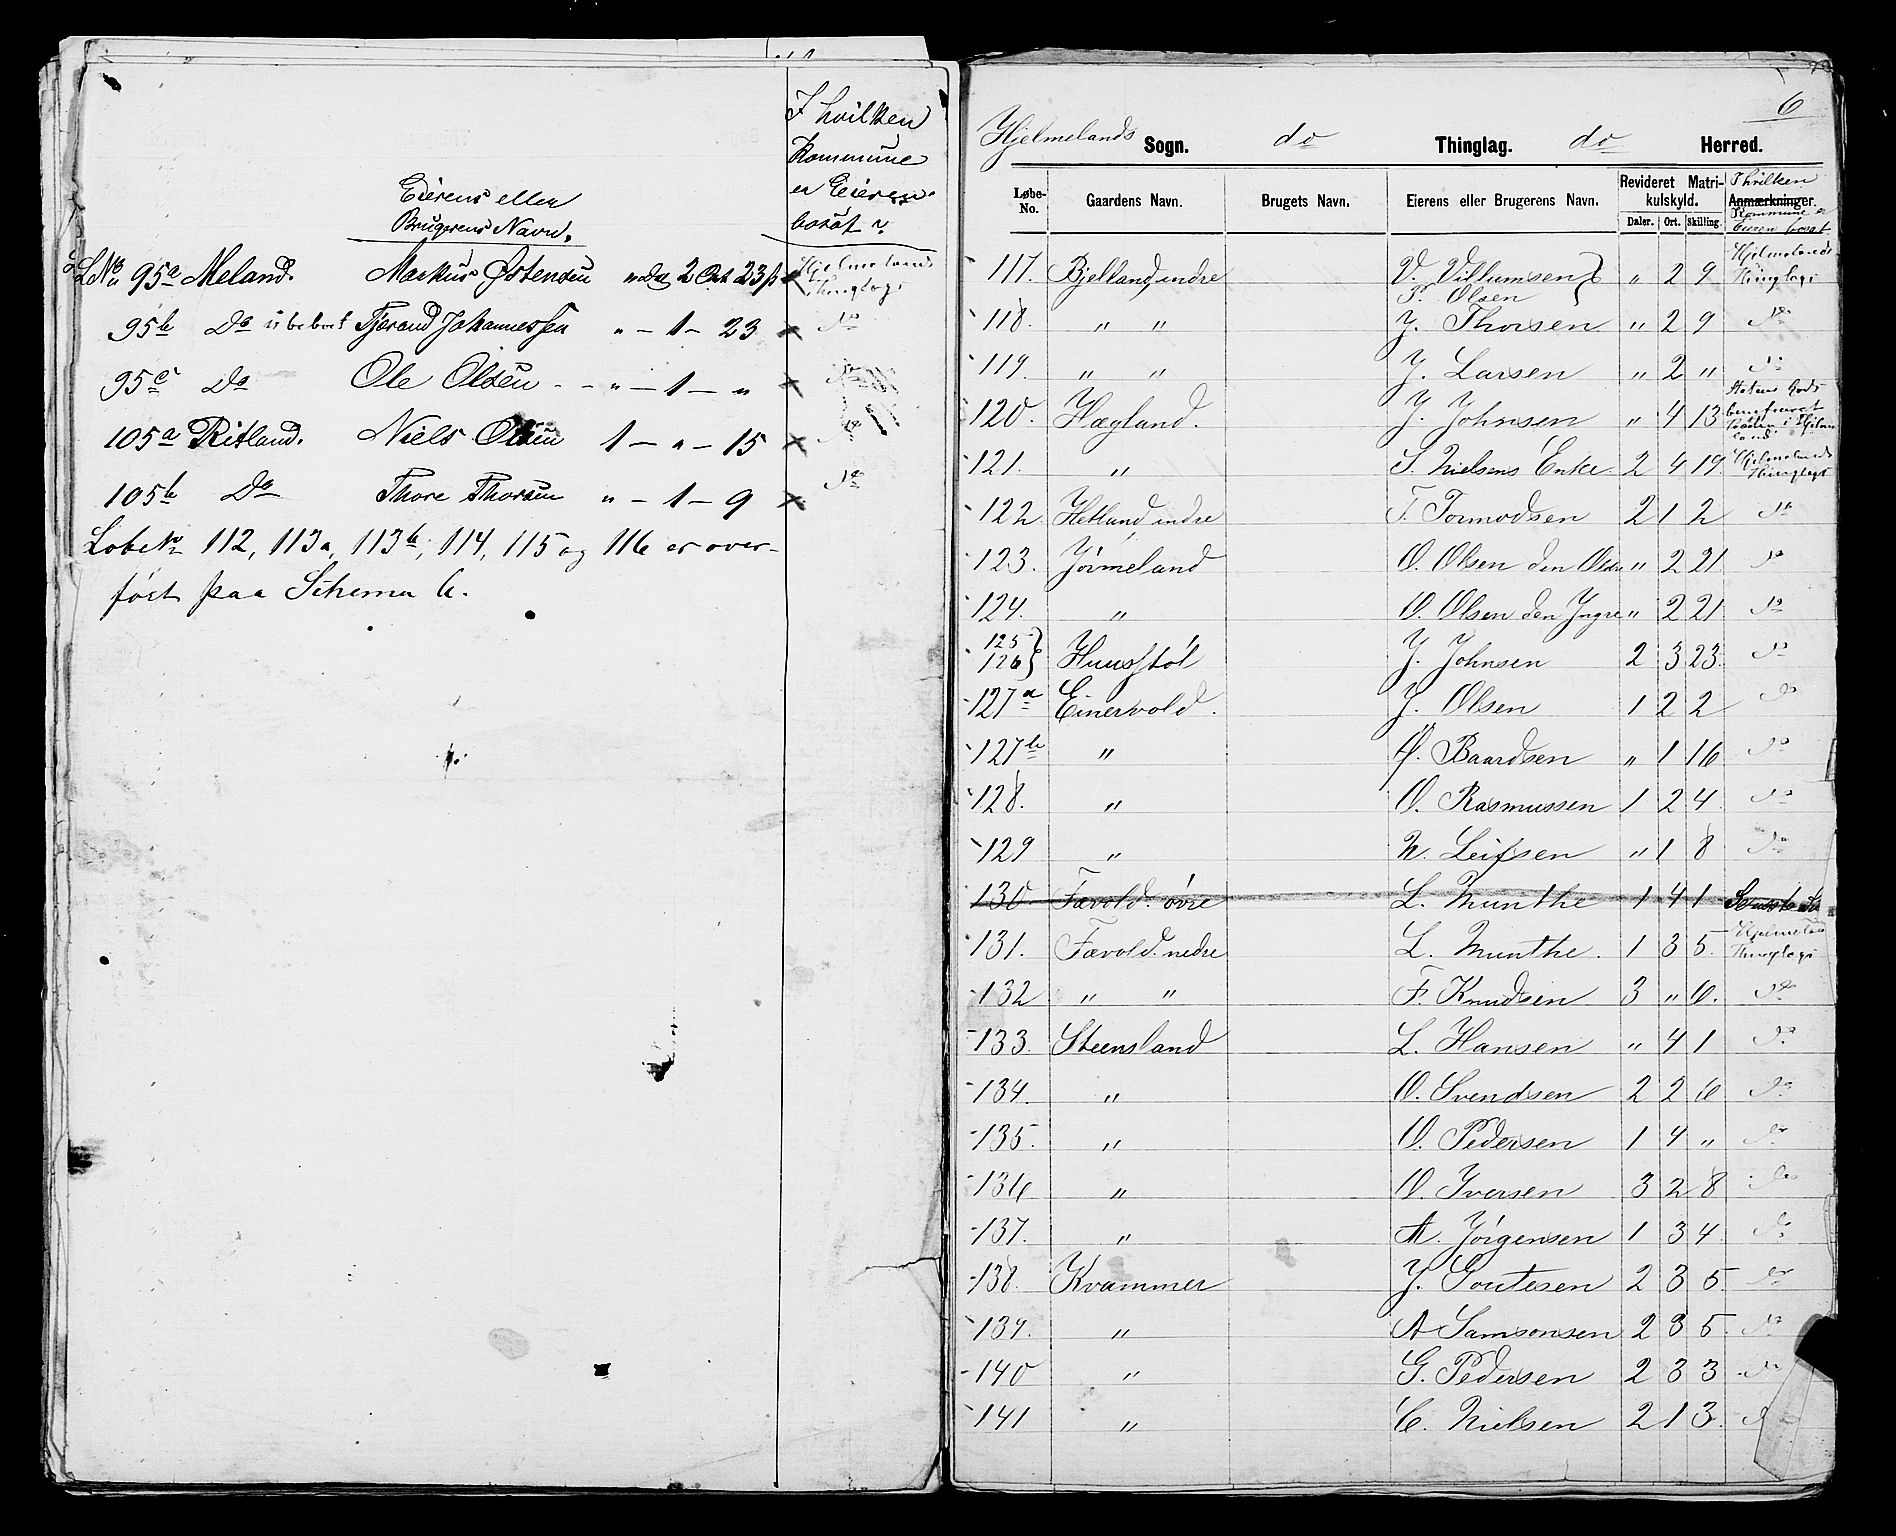 I hvilken
Kommune
er Eieren
bosat?
Eierens eller
Brugerens Navn.
LNo 95a Meland. Markus Østensen " Dal 2 Ort 23 ß Hjelmelands Thinglag
95b Do ubeboet Tjerand Johannessen " – 1 – 23 Do
95c Do Ole Olsen " – 1 – " Do
105a Ritland. Niels Olsen 1 – " – 15 Do
105b Do Thore Thorsen " – 1 – 9 Do
Løbe No 112, 113a, 113b, 114, 115 og 116 er over-
ført paa Schema 6.
6
Hjelmelands Sogn. do Thinglag. do Herred.
Løbe-No. Gaardens Navn. Brugets Navn. Eierens eller Brugerens Navn. Revideret Matrikulskyld. Anmærkninger.
Daler. Ort. Skilling.
I hvilken Kommune er Eieren bosat
117. Bjelland, indre V. Villumsen } T. Olsen " 2 9 Hjelmelands Thinglag
118. " " J. Thorsen " 2 9 Do
119. " " J. Larsen " 2 " Do
120. Hægland. J. Johnsen " 4 13
121. " S. Nielsens Enke. 2 4 19 Hjelmelands Thinglag
122. Hetland indre T. Tormodsen 2 1 2 Do
123. Jørmeland O. Olsen den Ældre " 2 21 Do
124. " O. Olsen den Yngre " 2 21 Do
125 } 126 } Huusstøl J. Johnsen 2 3 23. Do
127a Einervold. J. Olsen 1 2 2 Do
127b " Ø. Baardsen " 1 16 Do
128. " O. Rasmussen 1 2 4 Do
129 " N. Leifsen " 1 8 Do
130. Fævold. øvre L. Munthe 1 4 1
131. Fævold. nedre L. Munthe. 1 3 5. Hjelmelands Thinglag
132 " " F. Knudsen 3 " 6. Do
133. Steensland L. Hansen " 4 1 Do
134. " O. Svendsen 2 2 6 Do
135. " O. Pedersen 1 4 " Do
136 " O. Iversen 3 2 8 Do
137. " A. Jørgensen 1 3 4 Do
138. Kvammer J. Goutesen 2 3 5. Do
139. " A Samsonsen 2 3 5. Do
140 " G. Pedersen 2 3 3 Do
141 " C. Nielsen 2 1 3. Do